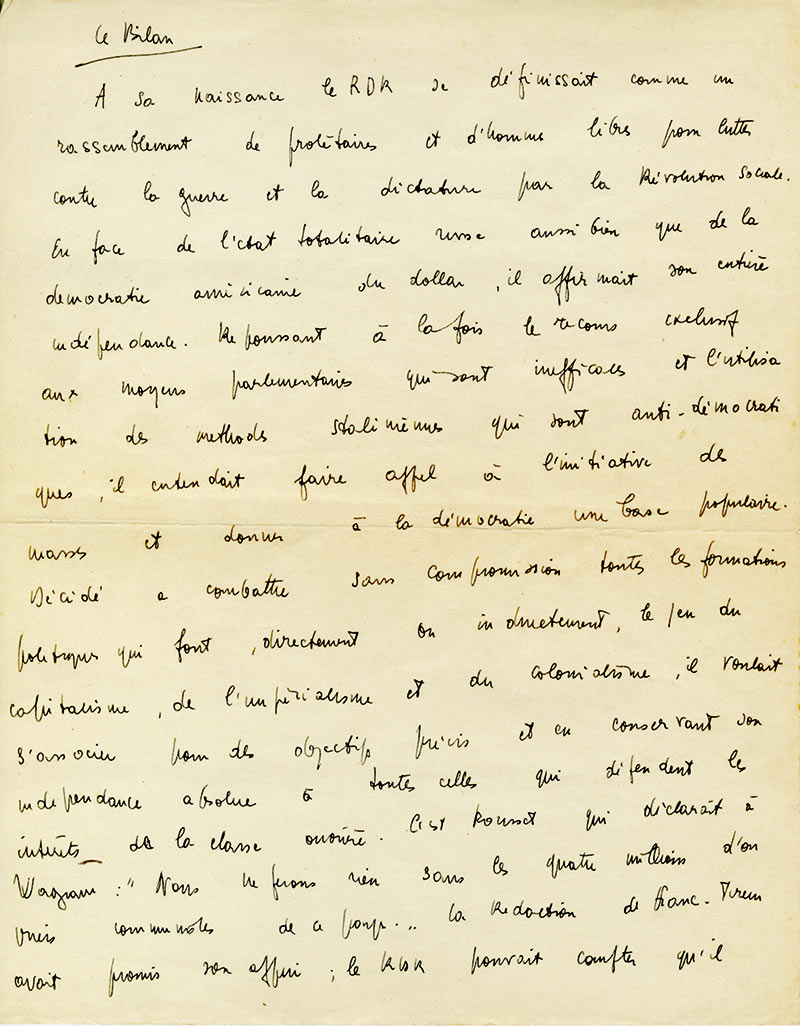 Le Bilan
A sa naissance le RDR se définissait comme un
rassemblement de prolétaires et d'homme libres pour lutter
contre la guerre et la dictature par la Révolution Sociale.
En face de l'etat totalitaire russe aussi bien que de la
democratie américaine du dollar, il affirmait son entière
indépendance. Repoussant à la fois le recours exclusif
aux moyens parlementaires qui sont inefficaces et l'utilisa
tion des methodes staliniennes qui sont anti-démocrati
ques, il entendait faire appel à l'initiative des
masses et donner à la démocratie une base populaire.
Décidé a combattre sans compromission toutes les formations
politiques qui font, directement ou indirectement, le jeu du
capitalisme, de l'impérialisme et du colonialisme, il voulait
s'associer pour des objectifs précis et en conservant son
independance absolue à toutes celles qui défendent les
intérêts de la classe ouvrière. C'est Rousset qui déclarait à
Wagram : " Nous ne ferons rien sans les quatre millions d'ou
vriers communistes de ce pays... La Redaction de Franc-Tireur
avait promis son appui ; le RDR pouvait compter qu'il